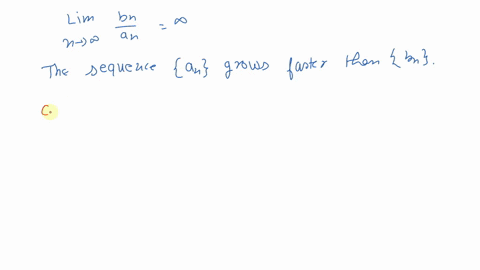 Lim n→∞ bn/an = ∞
The sequence {an} grows faster then {bn}.
C.